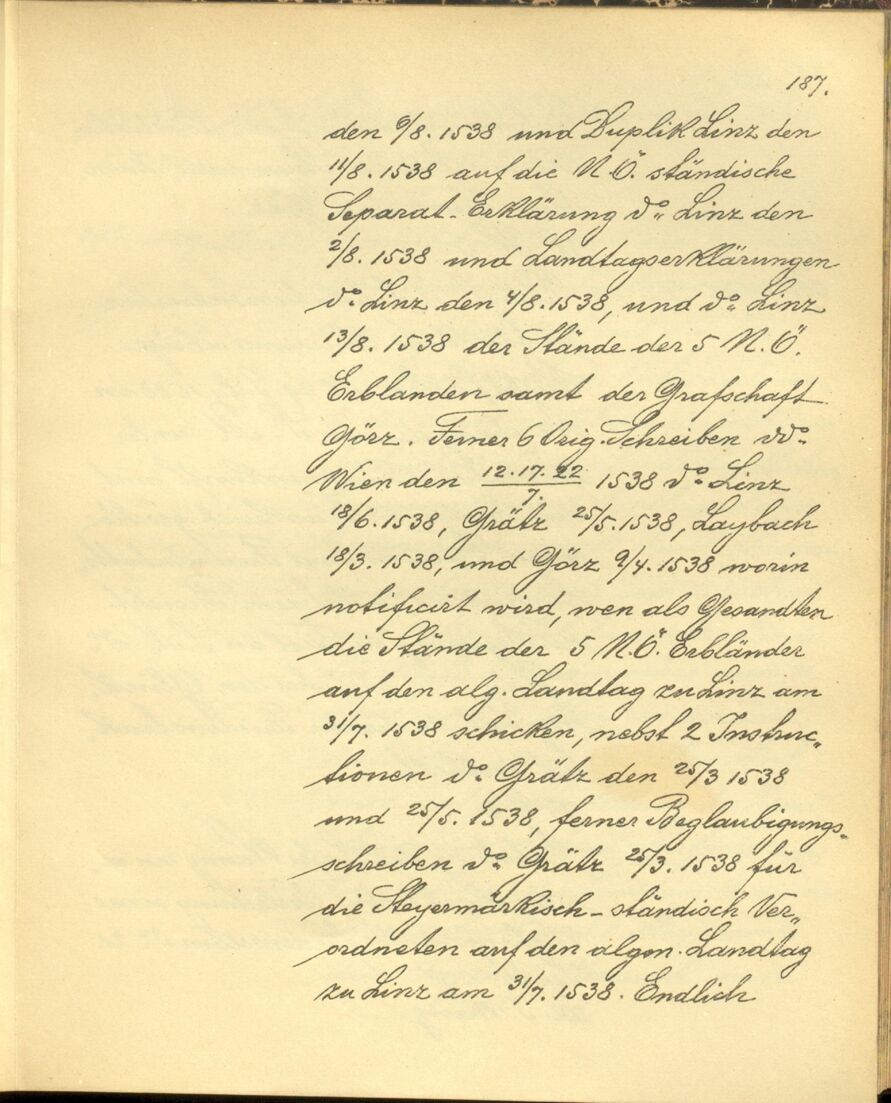 187.
den 9/8. 1538 und Duplik Linz den
11/8. 1538 auf die N.Ö. ständische
Separat-Erklärung do Linz den
2/8. 1538 und Landtagserklärungen
do Linz den 4/8. 1538, und do Linz
13/8. 1538 der Stände der 5 N.Ö.
Erblanden samt der Grafschaft
Görz. Ferner 6 Orig. Schreiben ddo
Wien den 12.17.22/7. 1538 do Linz
18/6. 1538, Grätz 25/5. 1538, Laybach
18/3. 1538, und Görz 9/4. 1538 worin
notificirt wird, wen als Gesandten
die Stände der 5 N.Ö. Erbländer
auf den alg. Landtag zu Linz am
31/7. 1538 schicken, nebst 2 Instruc„
tionen do Grätz den 25/3 1538
und 25/5. 1538, ferner Beglaubigungs„
schreiben do Grätz 25/3. 1538 für
die Steyermärkisch-ständisch Ver„
ordneten auf den algem. Landtag
zu Linz am 31/7. 1538. Endlich